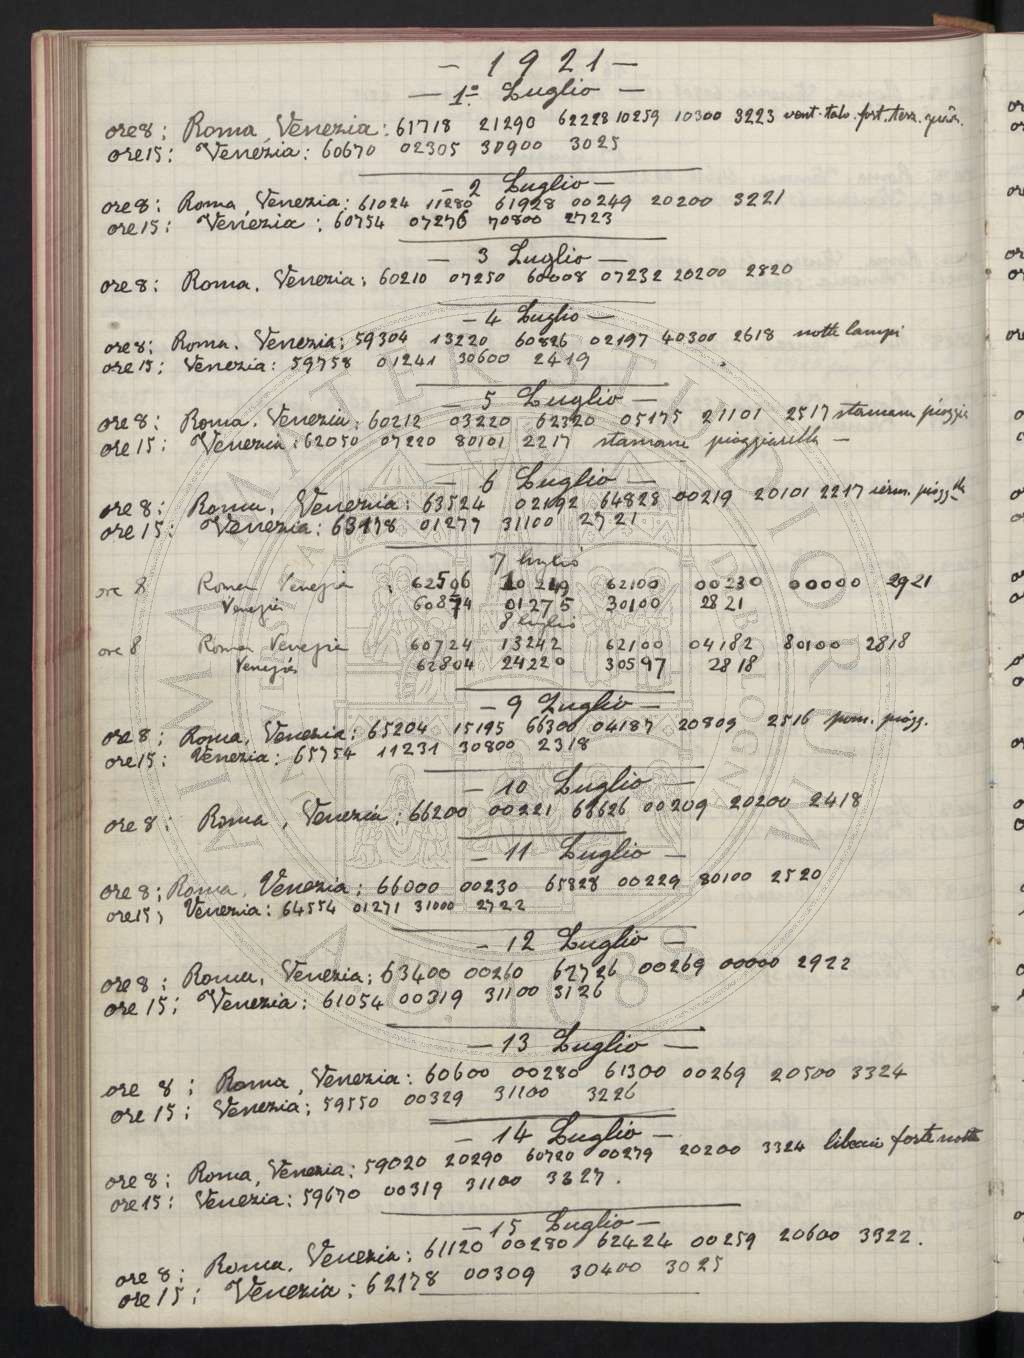 — 1921 —
— 1º Luglio —
ore 8: Roma, Venezia: 61718 21290 62228 10259 10300 3223
ore 15: Venezia: 60670 02305 30900 3025
— 2 Luglio —
ore 8: Roma, Venezia: 61024 11280 61928 00249 20200 3221
ore 15: Venezia: 60754 07276 70800 2723
— 3 Luglio —
ore 8: Roma, Venezia: 60210 07250 60008 07232 20200 2820
— 4 Luglio —
ore 8: Roma, Venezia: 59304 13220 60826 02197 40300 2618 notte lampi
ore 15: Venezia: 59758 01241 30600 2419
— 5 Luglio —
ore 8: Roma, Venezia: 60212 03220 62320 05175 21101 2517 stamane pioggia
ore 15: Venezia: 62050 07220 80101 2217 stamane pioggiarella —
— 6 Luglio —
ore 8: Roma, Venezia: 63524 02192 64828 00219 20101 2217
ore 15: Venezia: 63178 01277 31100 2721
7 luglio
ore 8 Roma Venezia : 62506 10219 62100 00230 00000 2921
Venezia 60874 01275 30100 2821
8 luglio
ore 8 Roma Venezia 60724 13242 62100 04182 80100 2818
Venezia 62804 24220 30597 2818
— 9 Luglio —
ore 8: Roma, Venezia: 65204 15195 66300 04187 20809 2516 pom. piogg.
ore 15: Venezia: 65754 11231 30800 2318
— 10 Luglio —
ore 8: Roma, Venezia: 66200 00221 66626 00209 20200 2418
— 11 Luglio —
ore 8: Roma, Venezia: 66000 00230 65828 00229 80100 2520
ore 15, Venezia: 64554 01271 31000 2722
— 12 Luglio —
ore 8: Roma, Venezia: 63400 00260 62726 00269 00000 2922
ore 15: Venezia: 61054 00319 31100 3126
— 13 Luglio —
ore 8: Roma, Venezia: 60600 00280 61300 00269 20500 3324
ore 15: Venezia: 59550 00329 31100 3226
— 14 Luglio —
ore 8: Roma, Venezia: 59020 20290 60720 00279 20200 3324 libeccio forte notte
ore 15: Venezia: 59670 00319 31100 3327.
— 15 Luglio —
ore 8: Roma, Venezia: 61120 00280 62424 00259 20600 3322.
ore 15: Venezia: 62178 00309 30400 3025